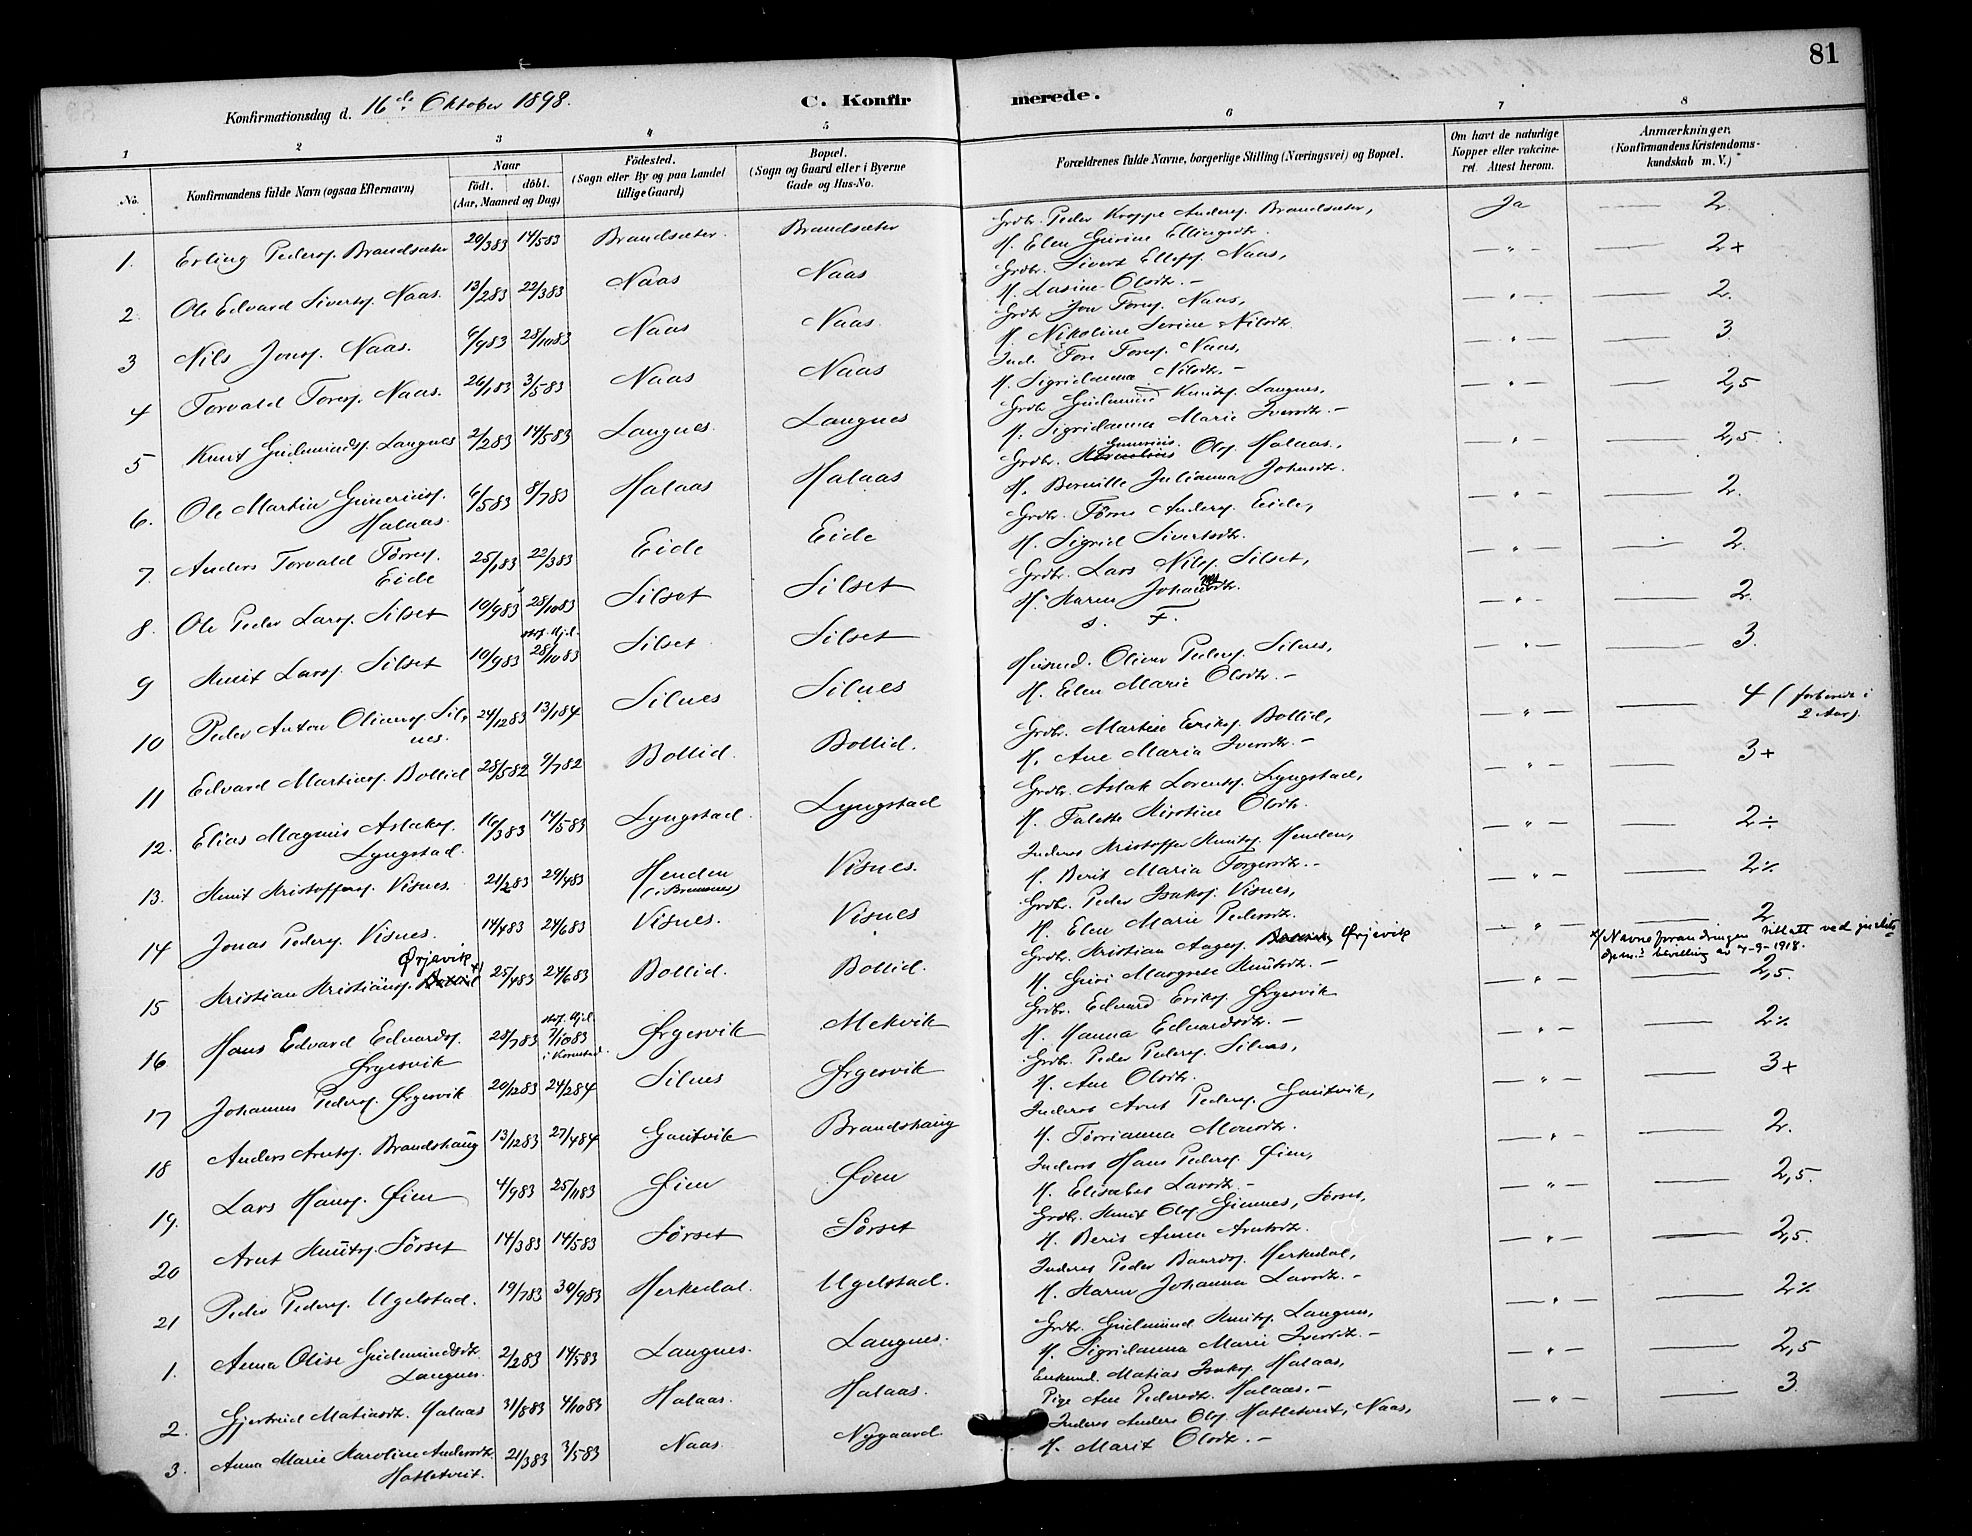 81
Konfirmationsdag d. 16de Oktober 1898.
C. Konfirmerede.
1 2 3 4 5 6 7 8
No.
Konfirmandens fulde Navn (ogsaa Efternavn)
Naar
födt. döbt.
(Aar, Maaned og Dag)
Födested.
(Sogn eller By og paa Landet
tillige Gaard)
Bopæl.
(Sogn og Gaard eller i Byerne
Gade og Hus-No.
Forældrenes fulde Navne, borgerlige Stilling (Næringsvei) og Bopæl.
Om havt de naturlige
Kopper eller vakcine-
ret. Attest herom.
Anmærkninger.
(Konfirmandens Kristendoms-
kundskab m. V.)
1. Erling Peders. Brandsæter 20/3 83 14/5 83 Brandsæter. Brandsæter Grdbr. Peder Kroppe Anders. Brandsæter, Ja — 2
H. Elen Gurine Ellingsdtr.
2. Ole Edvard Sivers. Naas. 13/2 83 22/3 83 Naas Naas Grdbr. Sivert Ellefs. Naas, — " — 2+
H. Lasine Olsdtr. —
3 Nils Jons. Naas. 6/9 83 28/10 83 Naas Naas. Grdb. Jon Tores. Naas, — " — 2.
H. Nikoline Serine Nilsdtr.
4 Torvald Tores. Naas. 26/1 83 3/5 83 Naas Naas Ind. Tore Tores. Naas, — " — 3
H. Sigridanna Nilsdtr. —
5 Knut Gudmunds. Langnes 2/2 83 14/5 83 Langnes. Langnes Grdbr. Gudmund Knuts. Langnes, — " — 2,5
H. Sigridanna Marie Iversdtr. —
6. Ole Martin Gunerius. 6/5 83 8/7 83 Halaas Halaas Grdbr. Gunerius Ols. Halaas, — " — 2,5.
Halaas. H. Bernille Julianna Johnsdtr.
7 Anders Torvald Tørres. 25/1 83 22/3 83 Eide Eide Grdbr. Tørres Anders. Eide, — " — 2.
Eide H. Sigrid Sivertsdtr.
8. Ole Peder Lars. Silset 10/9 83 28/10 83 Silset Silset Grdbr. Lars Nils. Silset, — " — 2.
H. Karen Johansdtr.
9 Knut Lars. Silset 10/9 83 28/10 83 Silset. Silset s. F. — " — 2.
10 Peder Anton Olivers. Sil- 24/12 83 13/1 84 Silnes Silnes Husmd. Oliver Peders. Silnes, — " — 3.
nes. H. Elen Marie Olsdtr. —
11 Edvard Martins. Bollid 28/5 82 9/7 82 Bollid. Bollid. Grdbr. Martin Eriks. Bollid, — " — 4 (forberedt i
2 Aar).
H. Ane Maria Iversdtr. —
12. Elias Magnus Aslaks. 16/3 83 14/5 83 Lyngstad. Lyngstad Grdbr. Aslak Lorents. Lyngstad, — " — 3+
Lyngstad. H. Falette Kirstine Olsdtr.
13. Knut Kristoffers. Visnes. 21/2 83 29/4 83 Henden Visnes. Inderst Kristoffer Knuts. Henden, — " — 2÷
(i Bremsnes) H. Berit Maria Torgersdtr. —
14 Jonas Peders. Visnes. 14/4 83 24/6 83 Visnes. Visnes Grdbr. Peder Isaks. Visnes, — " — 2÷
H. Elen Marie Pedersdtr.
Ørjavik
15 Kristian Kristians. 25/4 83 24/6 83 Bollid. Bollid. Grdbr. Kristian Aages. Ørjevik — " — 2
H. Guri Margrete Knutsdtr. —
x/ Navneforandringen tillatt ved justits-
bevilling av 7-9-1918.
16 Hans Edvard Edvards. 28/7 83 7/10 83 Ørgesvik Mekvik Grdbr. Edvard Eriks. Ørgesvik — " — 2,5.
Ørgesvik i Kornstad. H. Hanna Edvardsdtr. —
17 Johannes Peders. Ørgesvik 20/12 83 24/2 84 Silnes Ørgesvik Grdbr. Peder Peders. Silnes, — " — 2÷
H. Ane Olsdtr.
18 Anders Arnts. Brandshaug 13/12 83 27/4 84 Gautvik Brandshaug Inderst Arnt Peders. Gautvik, — " — 3+
H. Tørrianna Monsdtr.
19. Lars Hans. Øien 4/9 83 25/11 83 Øien Øien Inderst Hans Peders. Øien, — " — 2.
H. Elisabet Larsdtr. —
20 Arnt Knuts. Sørset 14/3 83 14/5 83 Sørset Sørset Grdbr. Knut Ols. Gimnes, Sørset, — " — 2,5.
H. Berit Anna Arntsdtr.
21 Peder Peders. Ugelstad. 19/7 83 30/9 83 Herkedal. Ugelstad. Inderst Peder Baards. Herkedal, — " — 2,5.
H. Karen Johanna Larsdtr. —
1. Anna Olise Gudmundsdtr. 2/2 83 14/5 83 Langnes. Langnes. Grdbr. Gudmund Knuts. Langnes, — " — 2÷
Langnes. H. Sigridanna Marie Iversdtr. —
2. Gjertrud Matiasdtr. Halaas 31/8 83 4/10 83 Halaas. Halaas. Matias Isaks. Halaas, — " — 2,5
Pige Ane Pedersdtr. Halaas. —
3. Anna Marie Karoline Andersdtr. 21/3 83 3/5 83 Naas. Nygaard Inderst Anders Ols. Hatletveit, Naas, — " — 3.
Hatletveit. H. Marit Olsdtr. —